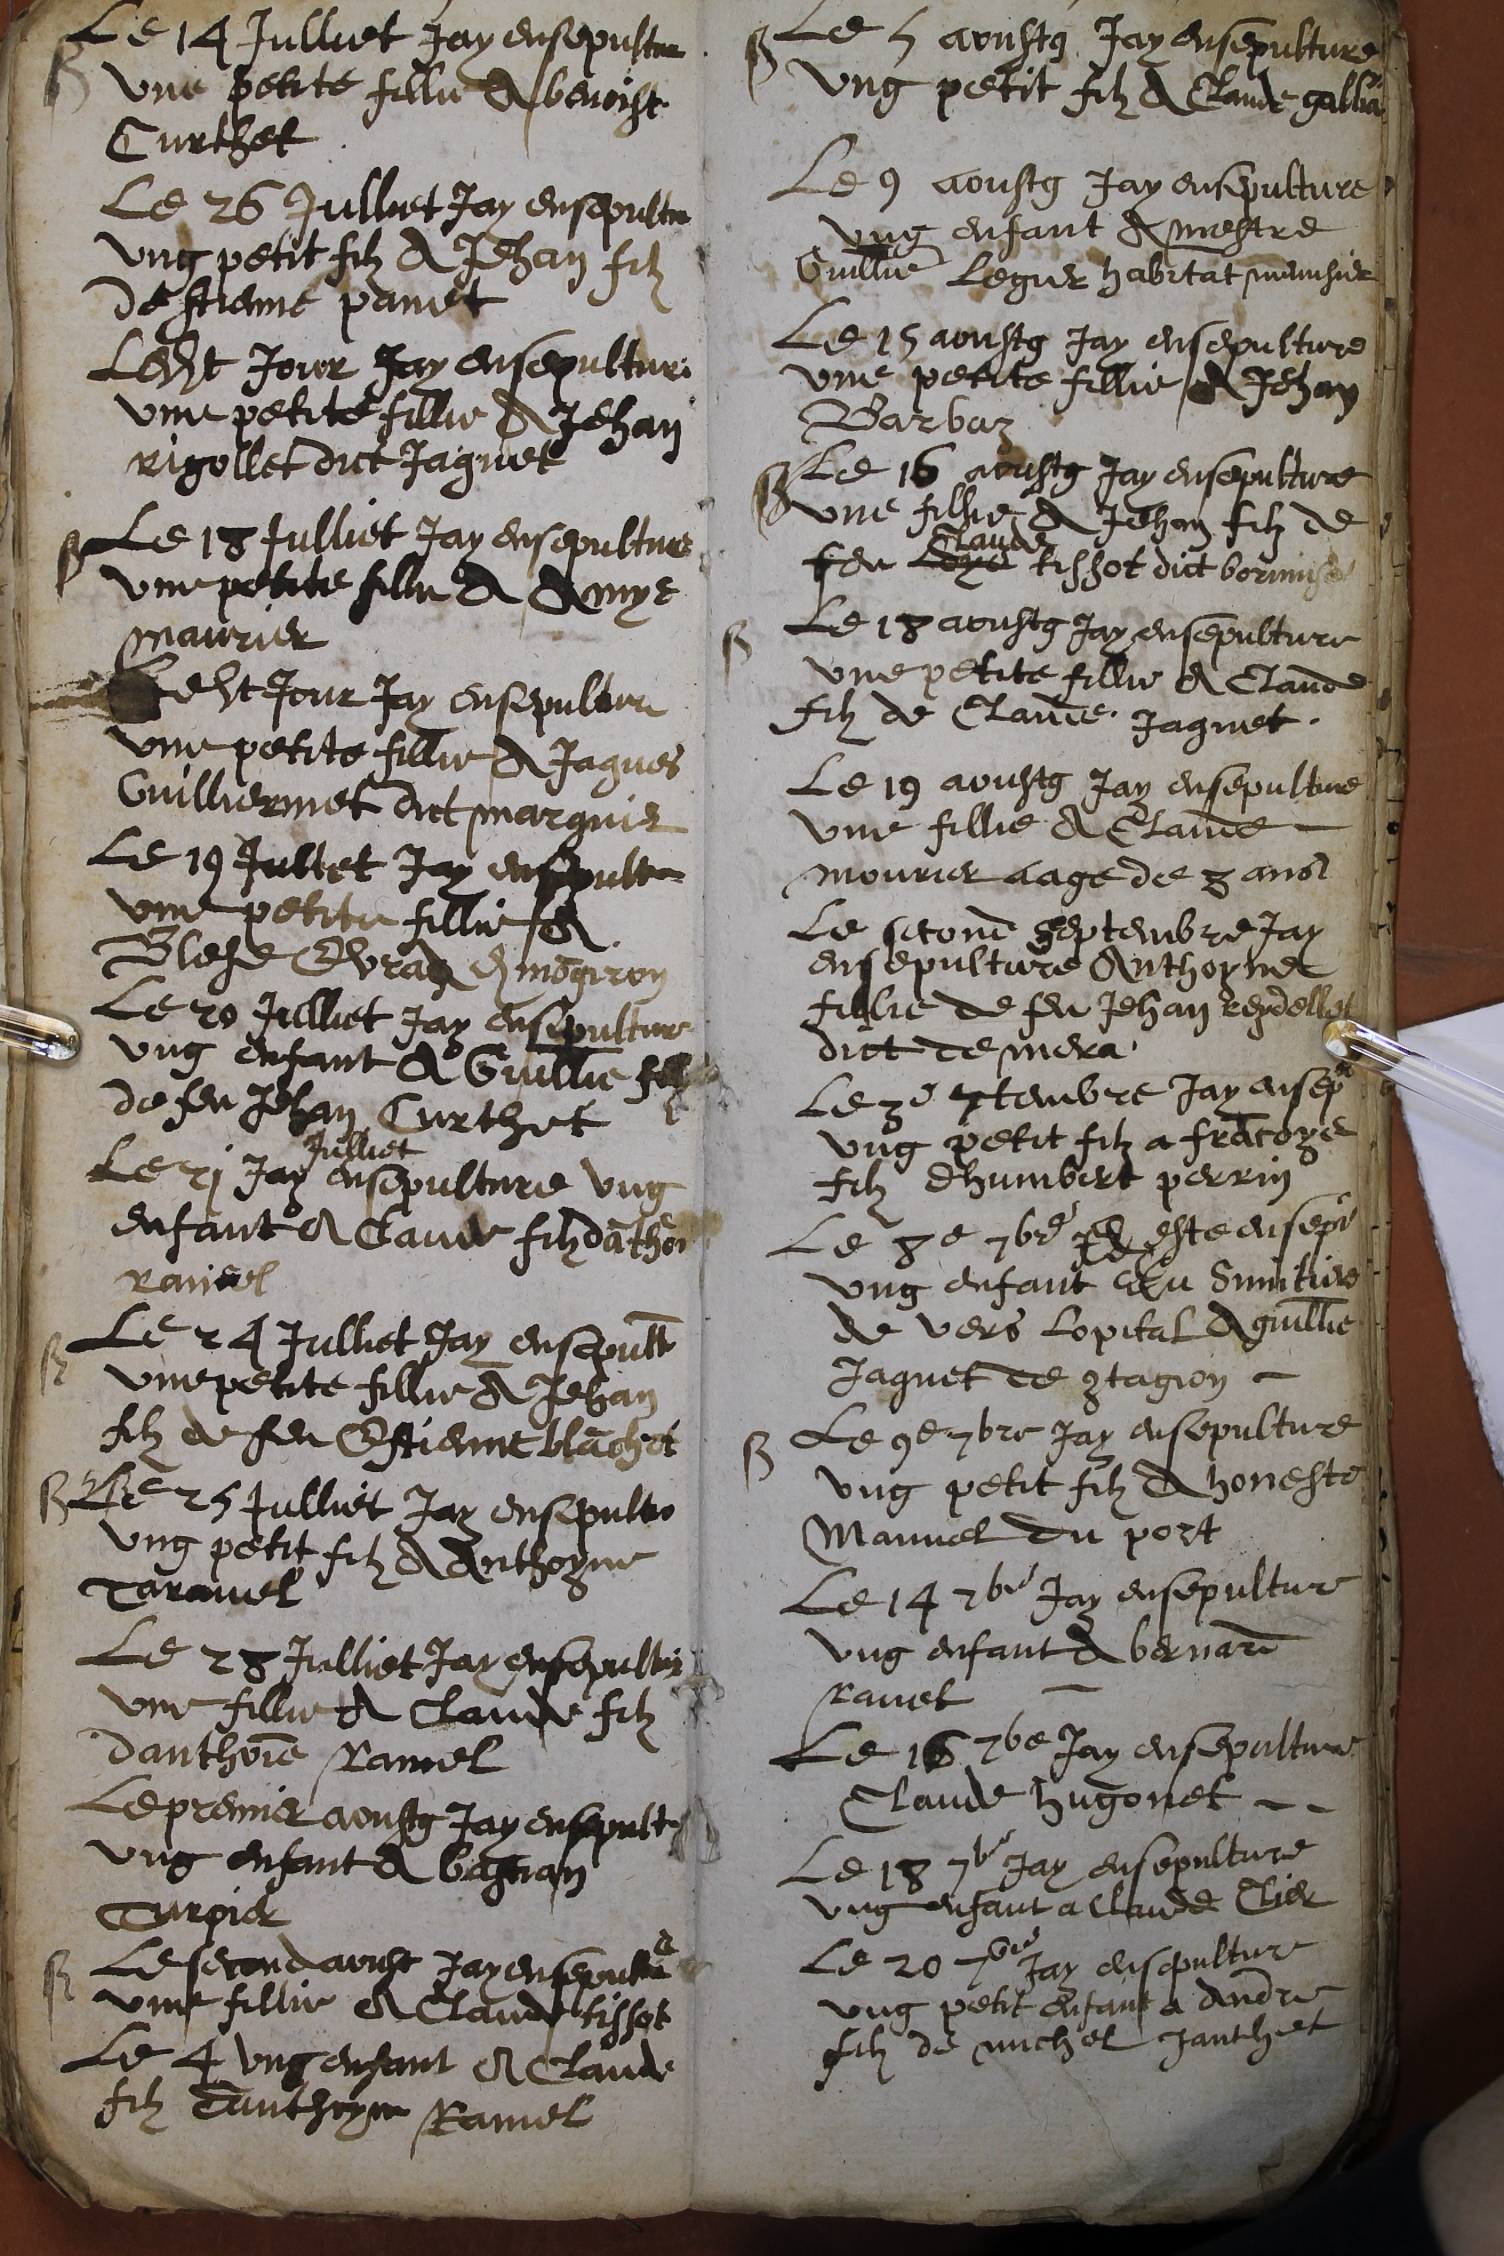 Le 14 Julliet Jay ensepultur
une petite fillie A benoist
Curthet
Le 26 Julliet Jay ensepultu
ung petit filz A Jehan filz
de stienne panet
Ledit Jour Jay ensepultur
une petite fillie A Jehan
rigollet dict Jaquet
Le 18 Julliet Jay ensepulture
une petite fillie A Amye
maurier
Ledit Jour Jay ensepultur
une petite fillie A Jaques
Guilliermet dict marquis
Le 19 Julliet Jay ensepultu
une petite fillie A
Blese
Le 20 Julliet Jay ensepulture
ung enfant A Guillie filz
de feu Jehan Curthet
Julliet
Le 21 Jay ensepulture ung
enfant A Claude filz danthoi
ramel
Le 24 Julliet Jay ensepult
une petite fillie A Jehan
filz de feu Estienne blachet
Le 25 Julliet Jay ensepultu
ung petit filz A Anthoyne
Taravel
Le 28 Julliet Jay ensepultur
une fillie A Claude filz
danthoie Ramel
Le premier aoustg Jay ensepult
ung enfant A bastian
Turpier
Le second aoust Jay ensepultu
une fillie A Claude tissot
Le 4 ung enfant A Claude
filz danthoyne Ramel
Le 5 aoustg Jay ensepulture
ung petit filz A Claude
Le 9 aoustg Jay ensepulture
ung enfant A mestre
Guillie Legier habitat menusier
Le 15 aoustg Jay ensepulture
une petite fillie A Jehan
Barbaz
Le 16 aoustg Jay ensepulture
une fillie A Jehan filz de
Claude
feu tissot dict
Le 18 aoustg Jay ensepulture
une petite fillie A Claude
filz de Claude Jaquet
Le 19 aoustg Jay ensepulture
une fillie A Claude
mourier aage de 3 ans
Le second septembre Jay
ensepulture Anthoyne
fillie de feu Jehan reydellet
dict de mera
Le 3e 7tembre Jay ensep
ung petit filz a fracoys
filz dhumbert perrin
Le 8e 7bre este ensepu
ung enfant au Simitiere
de vers Lopital A guillie
Jaquet de 9tagion
Le 9e 7bre Jay ensepulture
ung petit filz A honeste
Manuel du port
Le 14 7bre Jay ensepulture
ung enfant A bernard
ravet
Le 16 7bre Jay ensepulture
Claude hugonet
Le 18 7bre Jay ensepulture
ung enfant a Claude Clier
Le 20 7bre Jay ensepulture
ung petit enfant a Andre
filz de michel Janthet